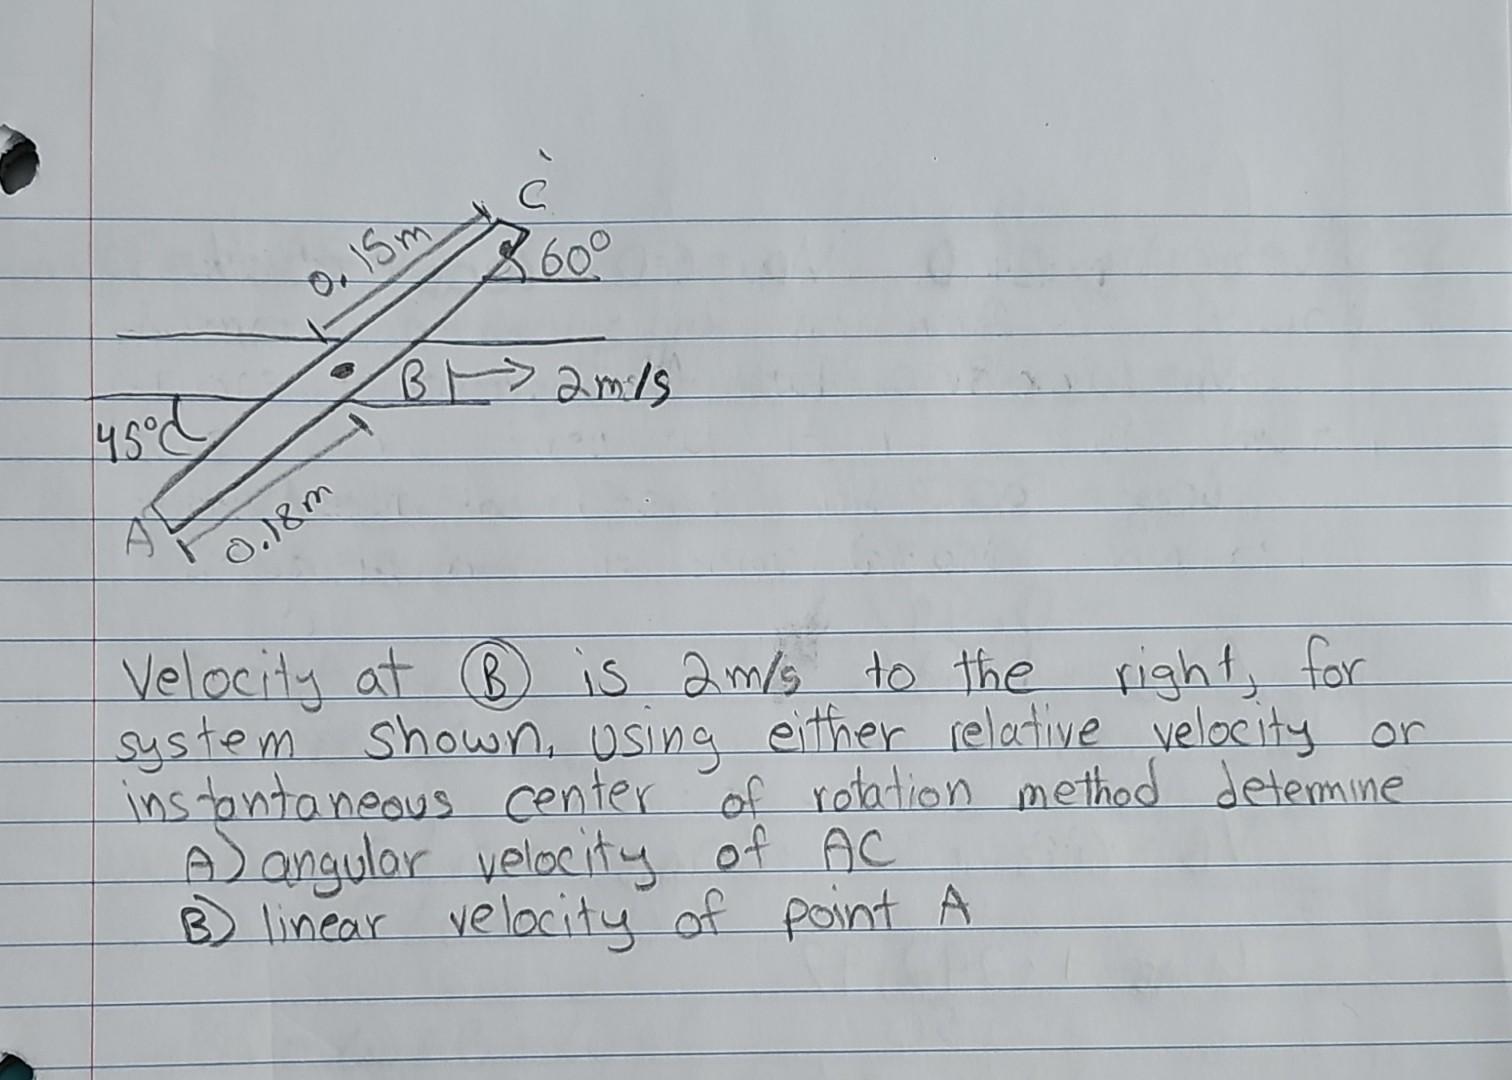 C
0.15m
60°
B
2m/s
45°
A
0.18m
Velocity at B is 2m/s to the right, for
system shown, using either relative velocity or
instantaneous center of rotation method determine
A) angular velocity of AC
B) linear velocity of point A